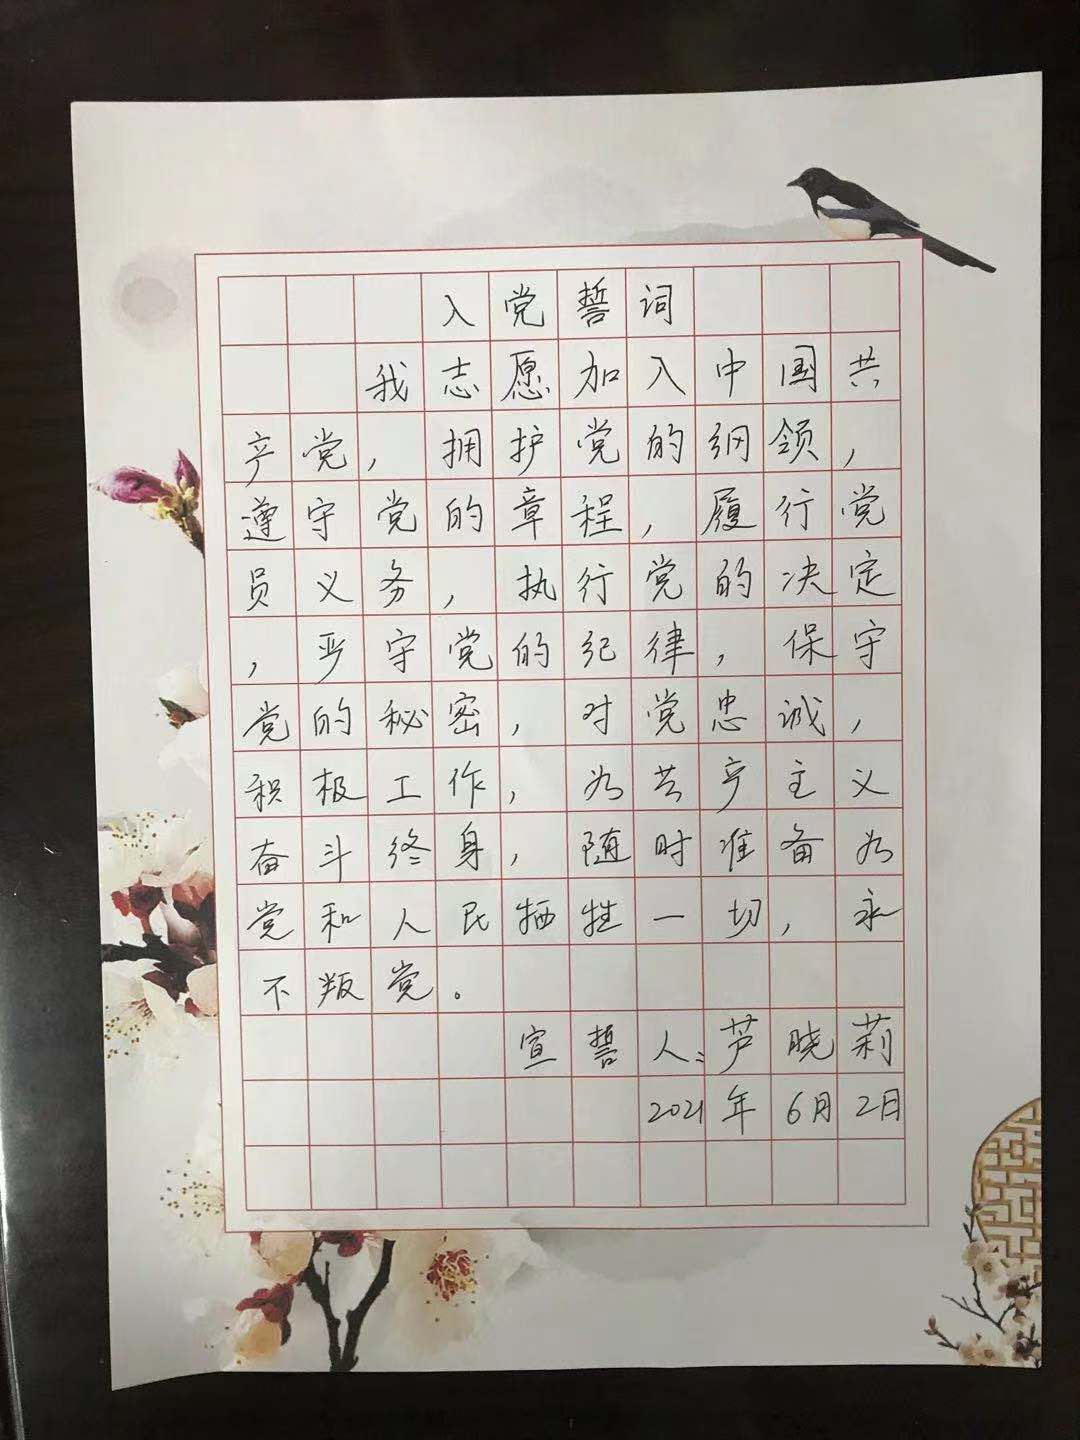 入党誓词
我志愿加入中国共
产党，拥护党的纲领，
遵守党的章程，履行党
员义务，执行党的决定
，严守党的纪律，保守
党的秘密，对党忠诚，
积极工作，为共产主义
奋斗终身，随时准备为
党和人民牺牲一切，永
不叛党。
宣誓人：芦晓莉
2021年6月2日